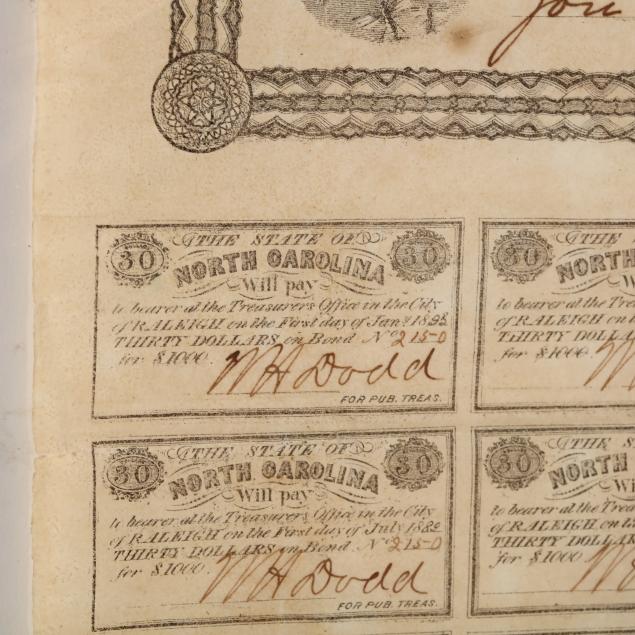 you
30 THE STATE OF 30
NORTH CAROLINA
Will pay
to bearer at the Treasurers Office in the City
of RALEIGH on the First day of Jany
THIRTY DOLLARS on Bond No 2150
for $1000.
W H Dodd
FOR PUB. TREAS.
30 THE
NORTH
to bearer at the
of RALEIGH on
THIRTY
for $1000.
30 THE STATE OF 30
NORTH CAROLINA
Will pay
to bearer at the Treasurers Office in the City
of RALEIGH on the First day of July
THIRTY DOLLARS on Bond No 2150
for $1000.
W H Dodd
FOR PUB. TREAS.
30 THE
NORTH
to bearer at the
of RALEIGH on
THIRTY
for $1000